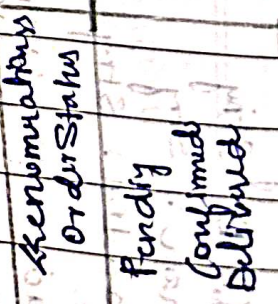 <<enumeration>>
Order Status
Pending
Confirmed
Delivered